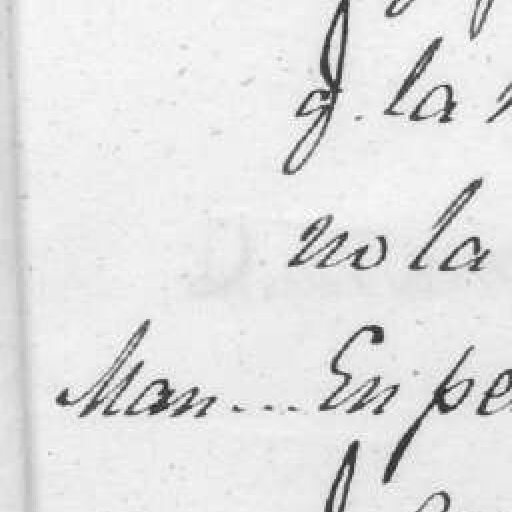 q. la
no la
Man... En pe